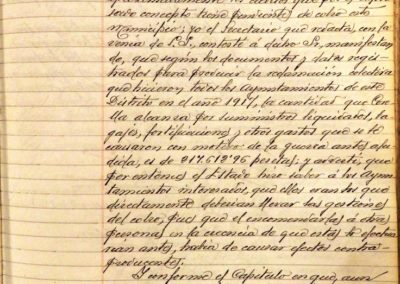 sado concepto tiene pendientes de cobro este
Municipio; yo el Secretario que redacta, con la
venia de S.S. contesté á dicho Sr. manifestan
do, que según los documentos y datos regis-
trados para producir la reclamación colectiva
que hicieron todos los Ayuntamientos de este
Distrito en el año 1917, la cantidad que Core-
lla alcanza por suministros liquidados, ba
gajes, fortificaciones y otros gastos que se le
causaron con motivo de la guerra antes alu-
dida, es de 017.613'96 pesetas; y advertí, que
por entonces el Estado hizo saber á los Ayun-
tamientos interesados, que ellos eran los que
directamente deberían llevar las gestiones
del cobro, pues que el encomendarlas á otras
personas, en la creencia de que estas lo efectua
rían antes, había de causar efectos contra-
producentes.
Y conforme el Capítulo en que, aun